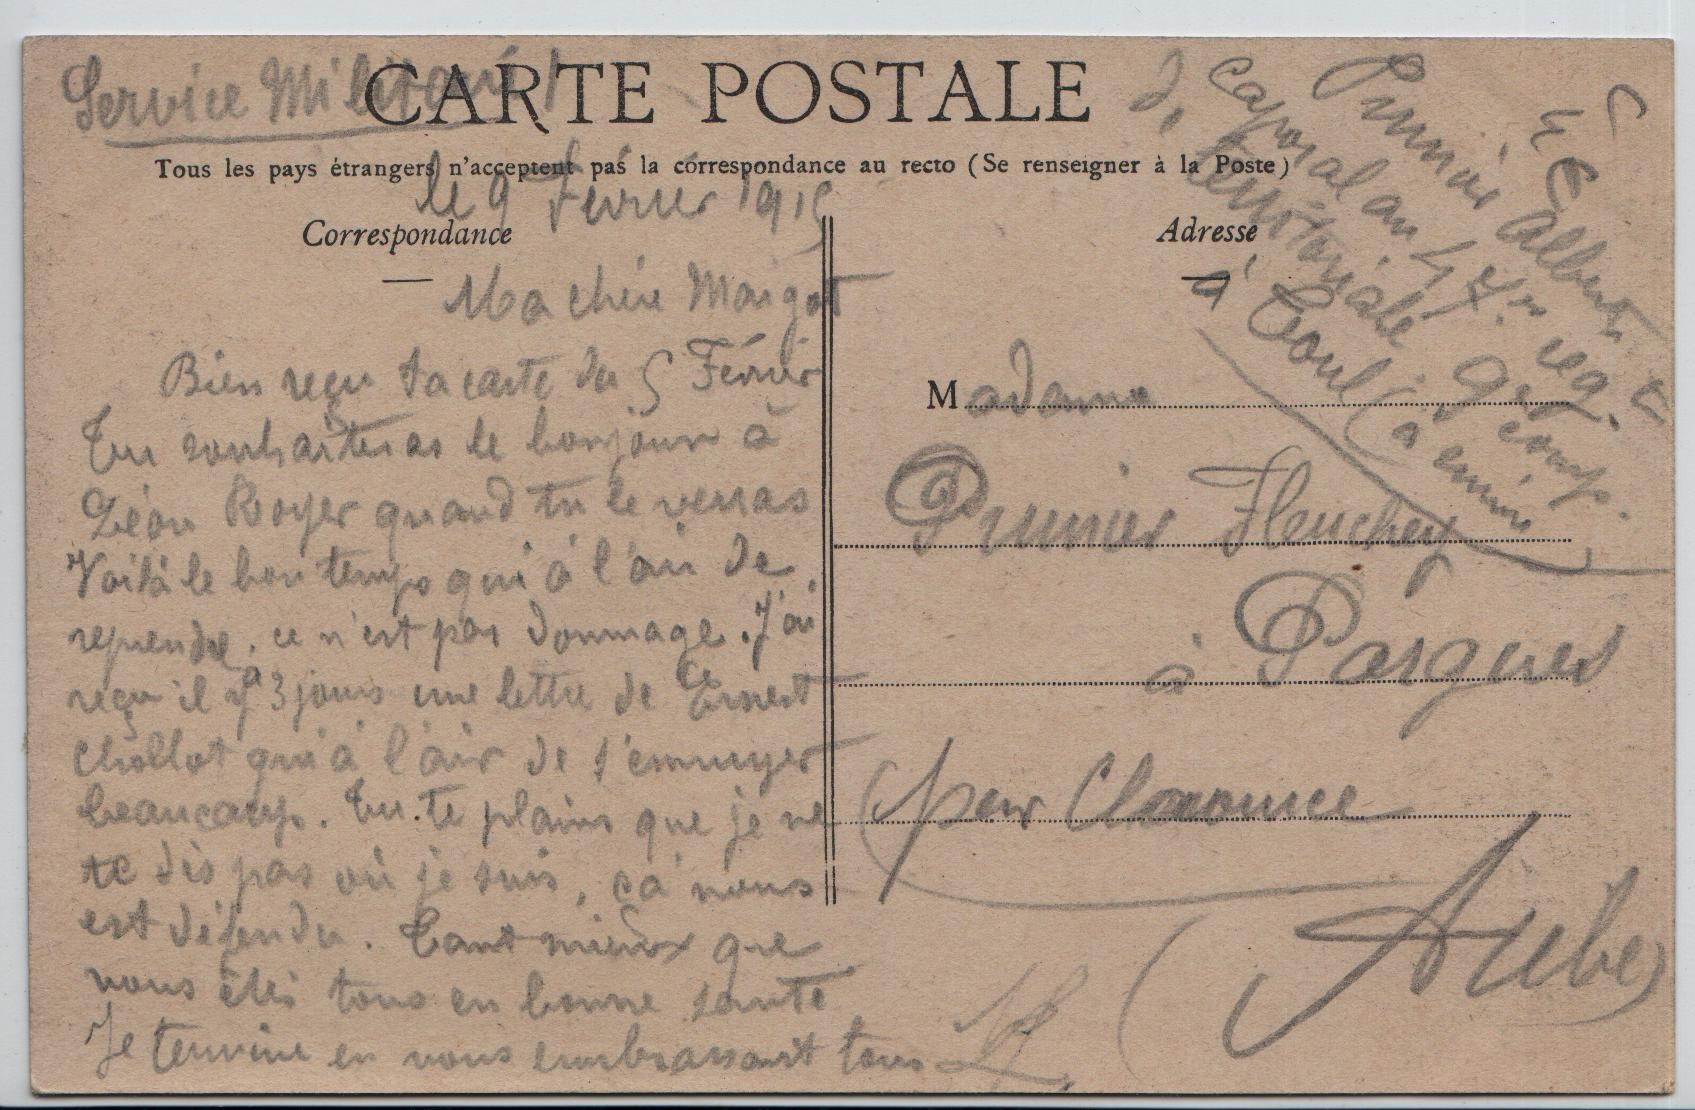 Service Militaire
CARTE POSTALE
Tous les pays étrangers n'acceptent pas la correspondance au recto (Se renseigner à la Poste)
le 9 Février 1915
Correspondance
Ma chère Margot
Bien reçu ta carte du 5 Février
Tu souhaiteras le bonjour à
Léon Royer quand tu le verras
Voilà le bon temps qui à l'air de
reprendre, ce n'est pas dommage. J'ai
reçu il y a 3 jours une lettre de Ernest
Chollot qui à l'air de s'ennuyer
beaucoup. Tu te plains que je ne
te dis pas où je suis, ça nous
est défendu. Tant mieux que
vous êtes tous en bonne santé
Je termine en vous embrassant tous
Adresse
Prunier Albert
caporal au 47em reg. t
de territoriale 9e comp.
à Toul (
Madame
Prunier Fleuchey
à Pargues
(par Chaource
(Aube)